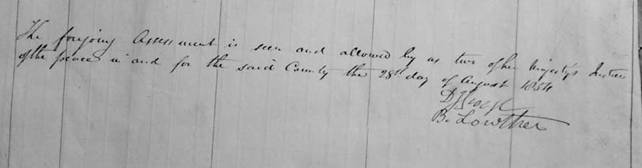 The forgoing Assessment is seen and allowed by us two of her Majesty's Justices
of the peace in and for the said County the 28th day of August 1854
B. Lowther